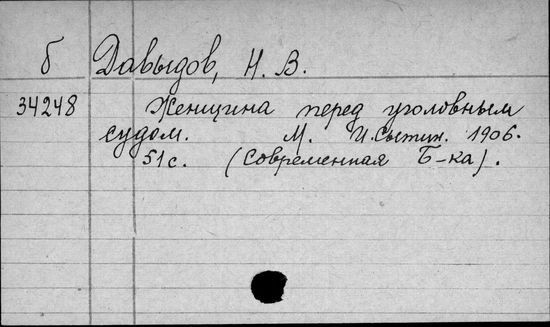 б Давыдов, Н. В.
34248 Женщина перед уголовным
судом. М. И. Сытин. 1906.
51 с. (Современная Б-ка).